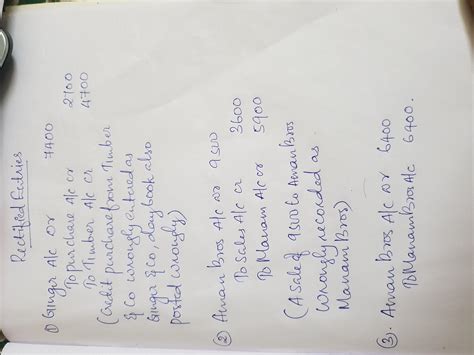 Rectified Entries
1) Ginger A/c Dr 7400
To purchase A/c cr 2700
To Timber A/c cr 4700
(Credit purchase from Timber
& Co wrongly entered as
Ginger & Co, day book also
posted wrongly)
② Aman Bros A/c Dr 9500
To Sales A/c cr 3600
To Manam A/c cr 5900
(A Sale of 9500 to Aman Bros
wrongly recorded as
Manam Bros)
③. Aman Bros A/c Dr 6400
To Manam Bros A/c 6400.